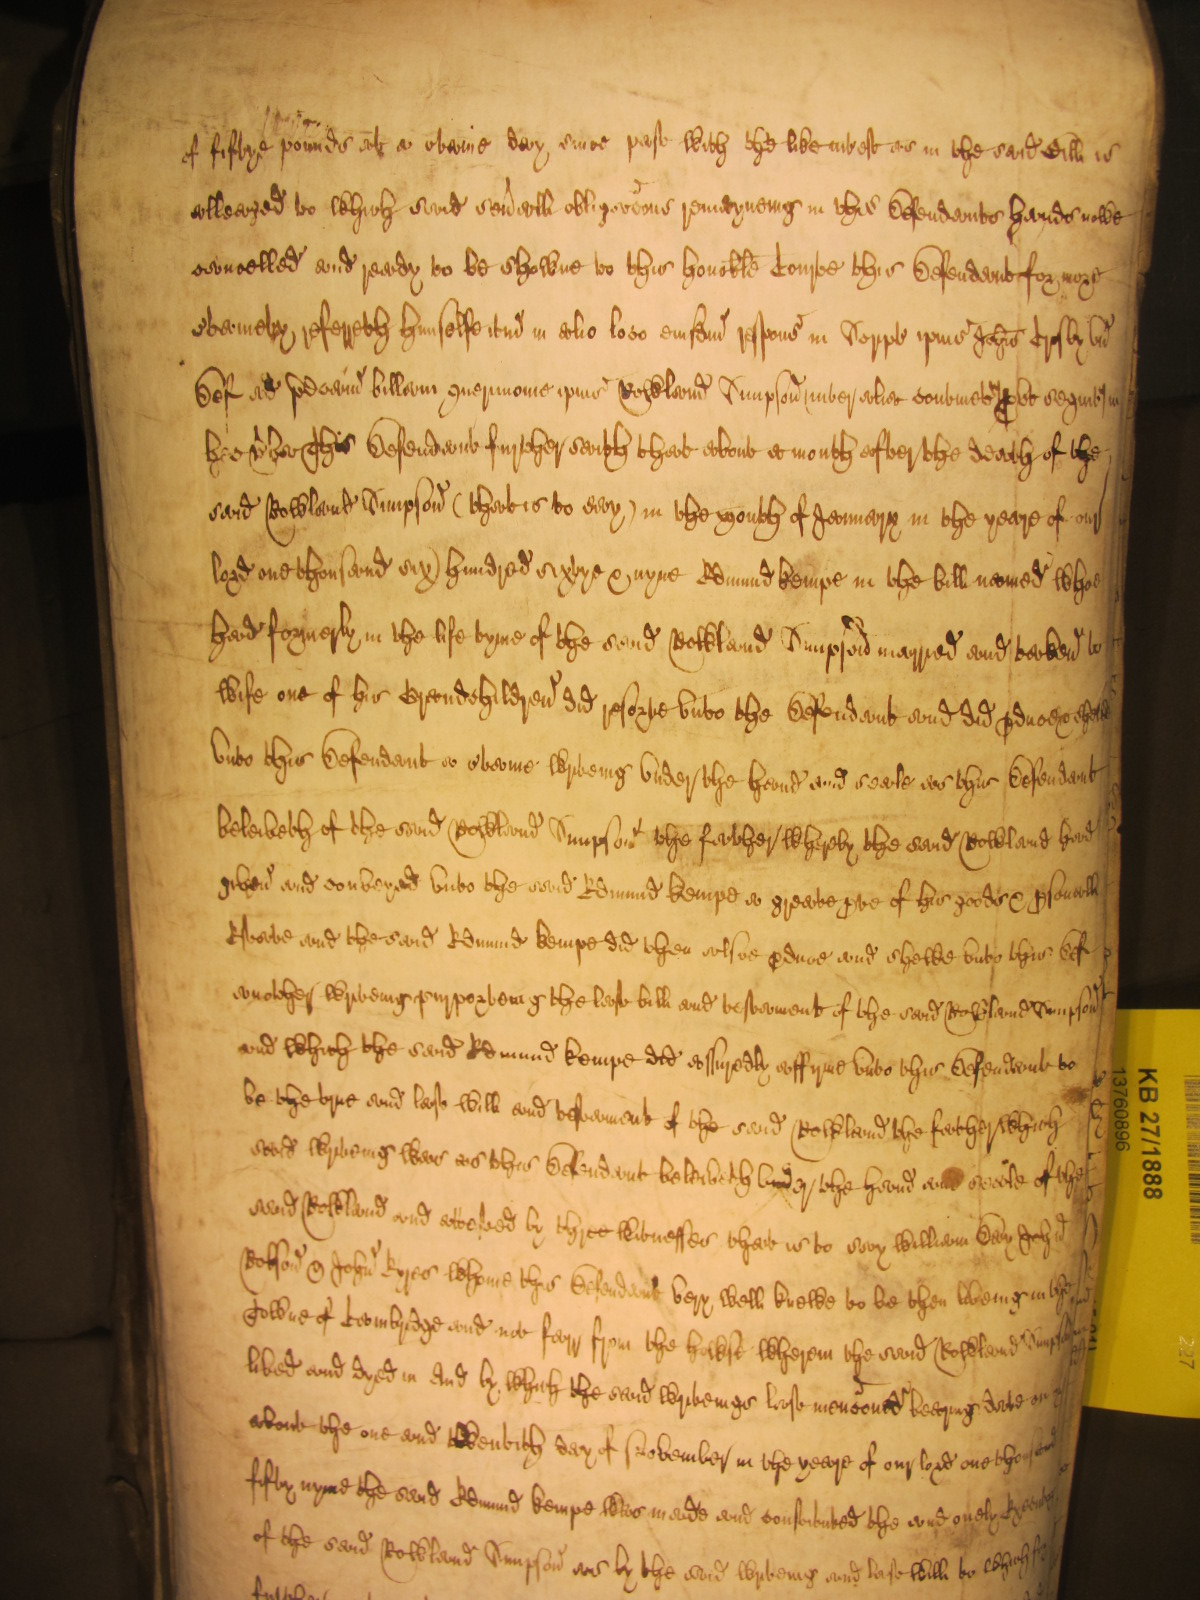 of fiftye pounds at a certaine day since past with the like interest as in the said Bill is
alleadged to which said sevall obligacons remayneing in this Defendants hands nowe
cancelled and ready to be showne to this honoble Courte this Defendant for more
certainety referreth himselfe And in alio loco eiusdm respons in Script ipius Johis Crosby un
Def ad pdcam billam querimonie ipius Rowland Simpson inter alia continet put sequit in
hec verba This Defendant further saith that about a month after the death of the
said Rowland Simpson (that is to say) in the month of January in the yeare of our
lord one thousand six hundred sixtye & nyne Edmund Kempe in the bill named whoe
had formerly in the life tyme of the said Rowland Simpson marryed and taken to
wife one of his Grandchildren did resorte unto the Defendant and did pduce & shewe
unto this Defendant a certaine wryteing under the hand and seale as this Defendant
beleiveth of the said Rowland Simpson the father whereby the said Rowland had
given and conveyed unto the said Edmund Kempe a greate pte of his goods & psonall
Estate and the said Edmund Kempe did then alsoe pduce and shewe unto this Def
another wryteing purporteing the last bill and testament of the said Rowland Simpson
and which the said Edmund Kempe did assuredly affirme unto this Defendant to
be the true and last will and testament of the said Rowland the father which
said wryteing was as this Defendant beleiveth under the hand and seale of the
said Rowland and attested by three witnesses that is to say William Day John
Robson & John Eyres whome this Defendant very well knewe to be then liveing in the
Towne of Cambridge and not farr from the howse wherein the said Rowland Simpson
lived and dyed in And by which the said wryteings last menconed beareing date on or
about the one and twentith day of November in the yeare of our lord one thousand
fifty nyne the said Edmund Kempe was made and constituted the and onely Executor
of the said Rowland Simpson as by the said wryteing and last will to which for
further
KB 27/1888
13760896
227